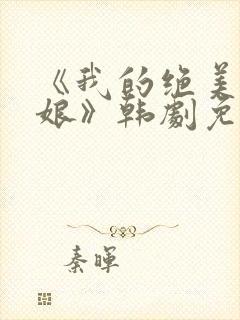 《我的绝美
娘》韩劇免
秦暉